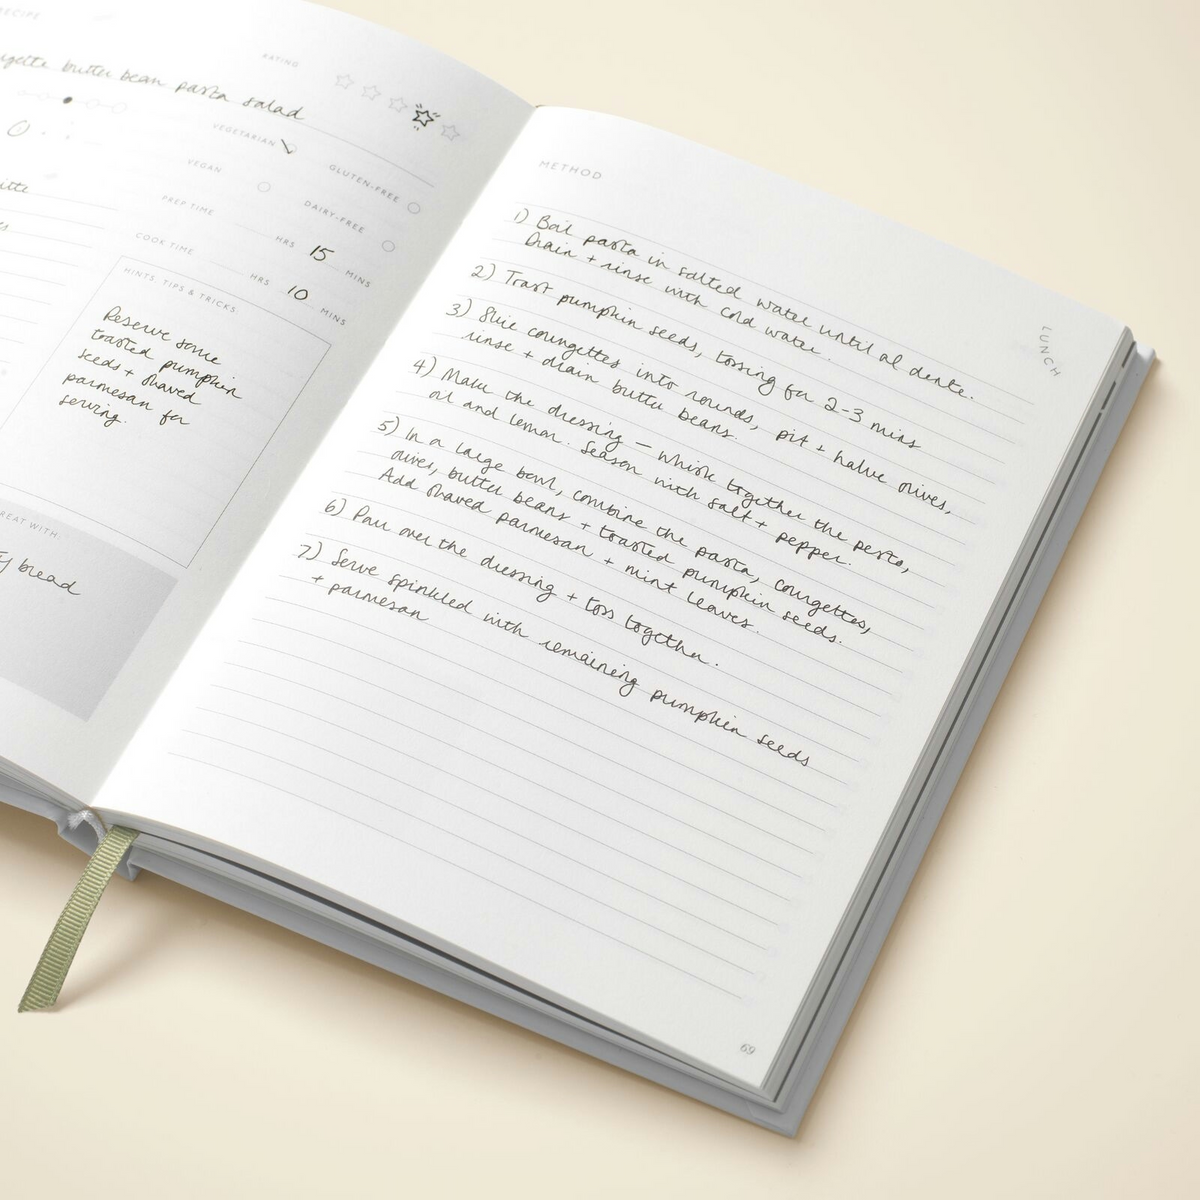 RECIPE
butter bean pasta salad
RATING
VEGETARIAN
GLUTEN-FREE
VEGAN
DAIRY-FREE
PREP TIME
HRS 15 MINS
COOK TIME
HRS 10 MINS
HINTS, TIPS & TRICKS:
Reserve some
toasted pumpkin
seeds + shaved
parmesan for
serving.
REAT WITH:
bread
METHOD
1) Boil pasta in salted water until al dente.
Drain + rinse with cold water.
2) Toast pumpkin seeds, tossing for 2-3 mins
3) Slice courgettes into rounds, pit + halve olives,
rinse + drain butter beans.
4) Make the dressing – whisk together the pesto,
oil and lemon. Season with salt + pepper.
5) In a large bowl, combine the pasta, courgettes,
olives, butter beans + toasted pumpkin seeds.
Add shaved parmesan + mint leaves.
6) Pour over the dressing + toss together.
7) Serve spinkled with remaining pumpkin seeds
+ parmesan
LUNCH
69